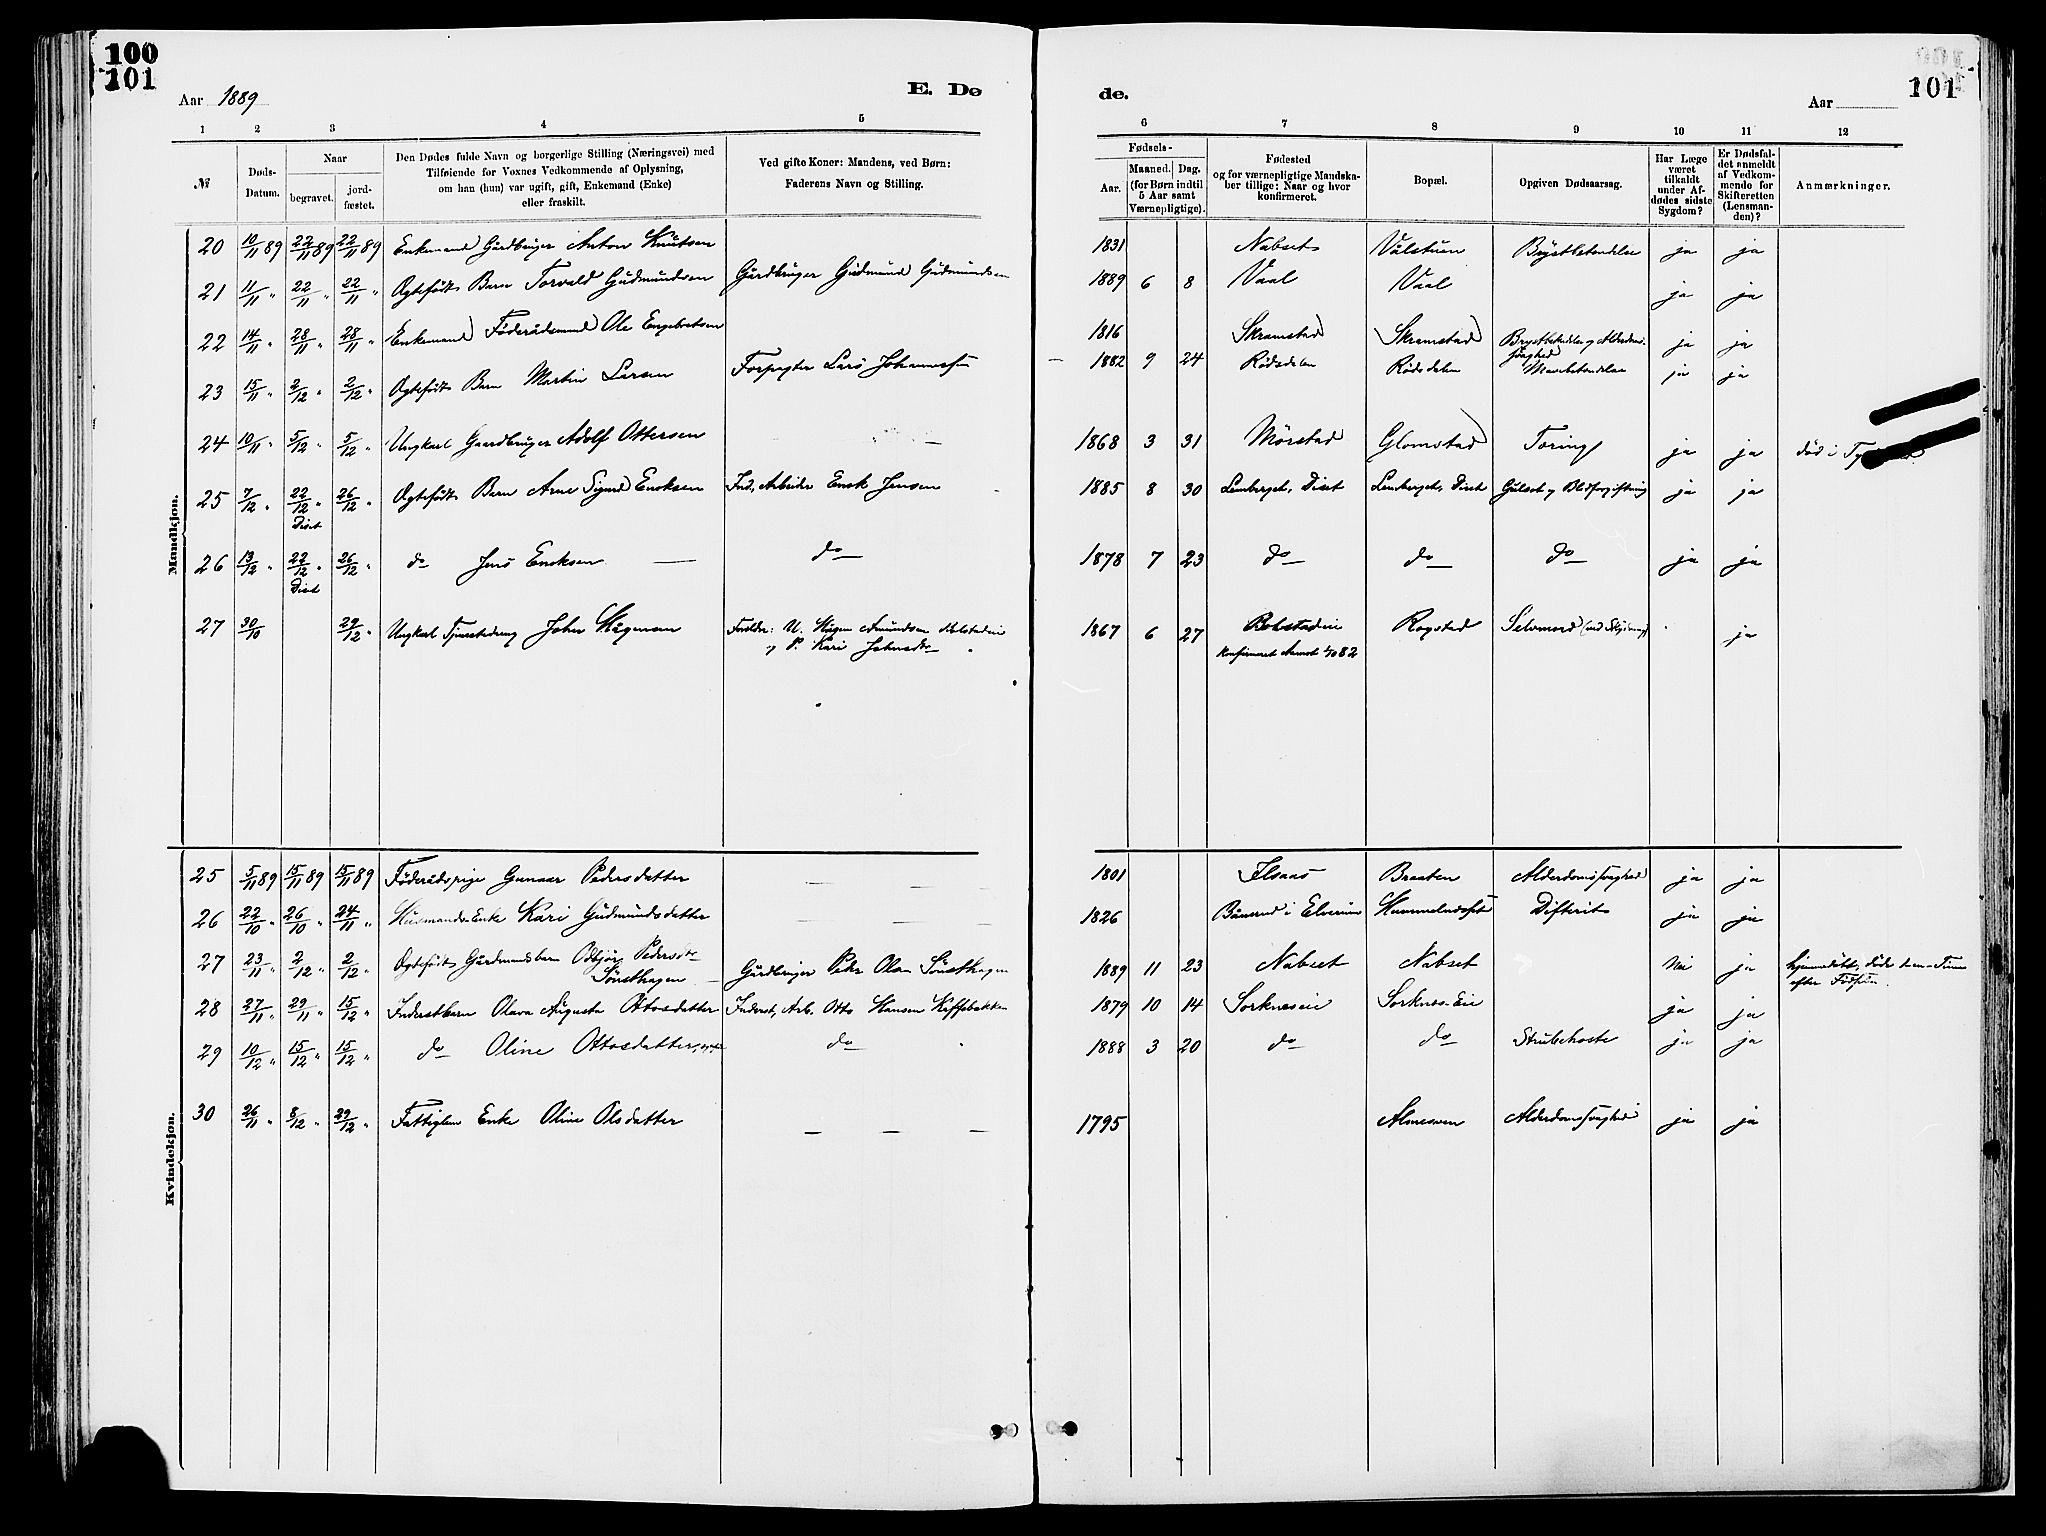 100
101
101
Aar 1889
E. Dø
de.
Aar
1 2 3 4 5
6 7 8 9 10 11 12
№
Døds-
Datum.
Naar
begravet.
jord-
fæstet.
Den Dødes fulde Navn og borgerlige Stilling (Næringsvei) med
Tilføiende for Voxnes Vedkommende af Oplysning,
om han (hun) var ugift, gift, Enkemand (Enke)
eller fraskilt.
Ved gifte Koner: Mandens, ved Børn:
Faderens Navn og Stilling.
Fødsels-
Aar.
Maaned. Dag.
(for Børn indtil
5 Aar samt
Værnepligtige).
Fødested
og for værnepligtige Mandska-
ber tillige: Naar og hvor
konfirmeret.
Bopæl.
Opgiven Dødsaarsag.
Har Læge
været
tilkaldt
under Af-
dødes sidste
Sygdom?
Er Dødsfal-
det anmeldt
af Vedkom-
mende for
Skifteretten
(Lensman-
den)?
Anmærkninger.
Mandkjøn.
20 10/11 89 22/11 89 22/11 89 Enkemand Gårdbruger Anton Knutsen 1831 Nabset Valstuen Brystbetendelse ja ja
21 11/11 " 22/11 " 22/11 " Ægtefødt Barn Torvald Gudmundsen Gårdbruger Gudmund Gudmundsen 1889 6 8 Vaal Vaal ja ja
22 14/11 " 28/11 " 28/11 " Enkemand Föderådsmand Ole Engebretsen 1816 Skramstad Skramstad Brystbetendelse og Alderdoms-
svaghed ja ja
23 15/11 " 2/12 " 2/12 " Ægtefødt Barn Martin Larsen Forpagter Lars Johannesen 1882 9 24 Rødsdalen Rødsdalen ja ja
24 10/11 " 5/12 " 5/12 " Ungkarl Gaardbruger Adolf Ottersen — 1868 3 31 Mørstad Glomstad Tæring ja ja død i
25 7/12 " 22/12 " Diset 26/12 " Ægtefødt Barn Arne Sigurd Eriksen Ind. Arbeider Erik Jensen 1885 8 30 Lemberget, Diset Lemberget, Diset Gulsot og Blodforgiftning ja ja
26 13/12 " 22/12 " Diset 26/12 " do Jens Eriksen — do 1878 7 23 do do do ja ja
27 30/10 29/12 " Ungkarl Tjenestedreng Johan Hågensen Forældre: U. Hågen Amundsen
og P. Kari Johnsdtr 1867 6 27 Bolstadeie Rogstad Selvmord ja
konfirmeret Aamot 1/10 82
Kvindekjøn.
25 5/11 89 15/11 89 15/11 89 Föderådspige Gunnar Pedersdatter — — 1801 Ilsaas Braaten Alderdomssvaghed ja ja
26 22/10 " 26/10 " 24/11 " Husmands Enke Kari Gudmundsdatter — — 1826 i Elverum Difterit ja ja
27 23/11 " 2/12 " 2/12 " Ægtefødt Gårdmandsbarn Odbjørg Pedersdtr
Sönsthagen — Gårdbruger Peder Olsen Sönsthagen 1889 11 23 Nabset Nabset Nei ja hjemmedöbt, döde en Time
efter Födselen.
28 27/11 " 29/11 " 15/12 " Inderstbarn Olava Augusta Ottosdatter Inderst, Arb. Otto Hansen Keffsbakken 1879 10 14 Sorknæseie Sorknæs-Eie ja ja
29 10/12 " 15/12 " 15/12 " do Oline Ottosdatter do 1888 3 20 do do Strubehoste ja ja
30 26/11 " 8/12 " 29/12 " Fattiglem Enke Oline Olsdatter — — — 1795 Almesven Alderdomssvaghed ja ja